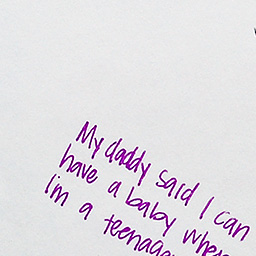 My daddy said I can
have a baby when
I'm a